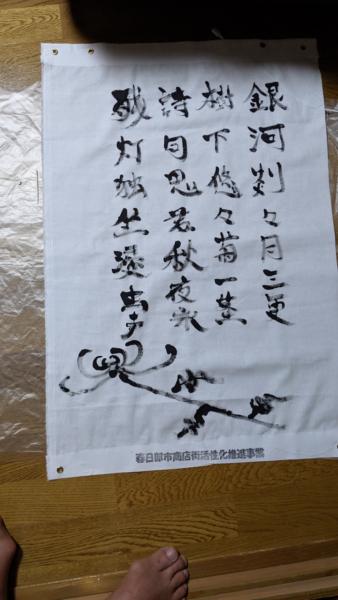 銀河剡々月三更
樹下悠々菊一茎
詩句思君秋夜永
残灯独坐虫声
春日部市商店街活性化推進事業